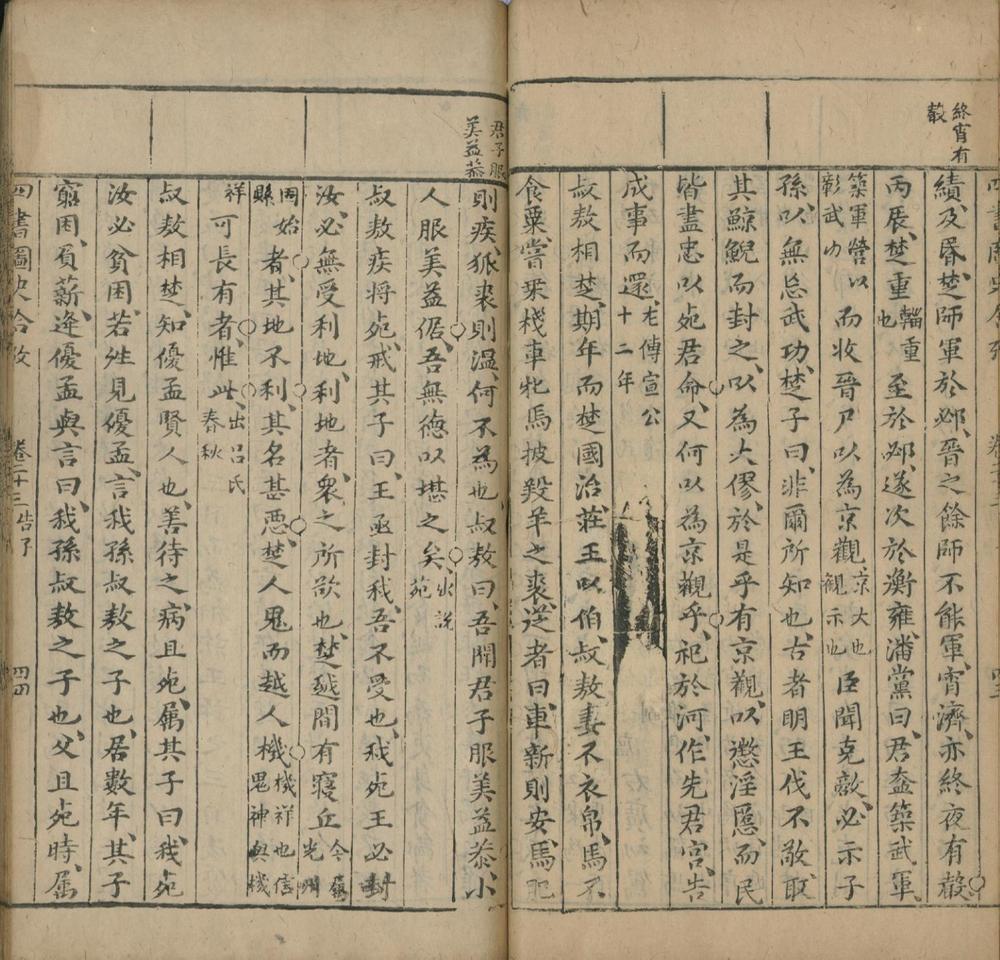 終宵有
聲
績及昏楚師軍於邲晉之餘師不能軍宵濟亦終夜有聲
丙辰楚重輜重也至於邲遂次於衡雍潘黨曰君盍築武軍
築軍營以彰武功而收晉尸以為京觀京大也觀示也臣聞克敵必示子
孫以無忘武功楚子曰非爾所知也古者明王伐不敬取
其鯨鯢而封之以為大僇於是乎有京觀以懲淫慝而民
皆盡忠以死君命又何以為京觀乎祀於河作先君宮告
成事而還左傳宣公十二年
叔敖相楚期年而楚國治莊王以伯叔敖妻不衣帛馬不
食粟嘗乗棧車牝馬披羖羊之裘從者曰車新則安馬肥
君子服
美益恭
則疾狐裘則溫何不為也叔敖曰吾聞君子服美益恭小
人服美益倨吾無德以堪之矣出說苑
叔敖疾將死戒其子曰王亟封我吾不受也我死王必封
汝必無受利地利地者衆之所欲也楚越間有寢丘今屬光州
固始縣者其地不利其名甚惡楚人鬼而越人禨禨祥也信鬼神與禨
祥可長有者惟此出呂氏春秋
叔敖相楚知優孟賢人也善待之病且死屬其子曰我死
汝必貧困若往見優孟言我孫叔敖之子也居數年其子
窮困負薪逢優孟與言曰我孫叔敖之子也父且死時屬
四書圖史合攷
卷二十三告子
四四